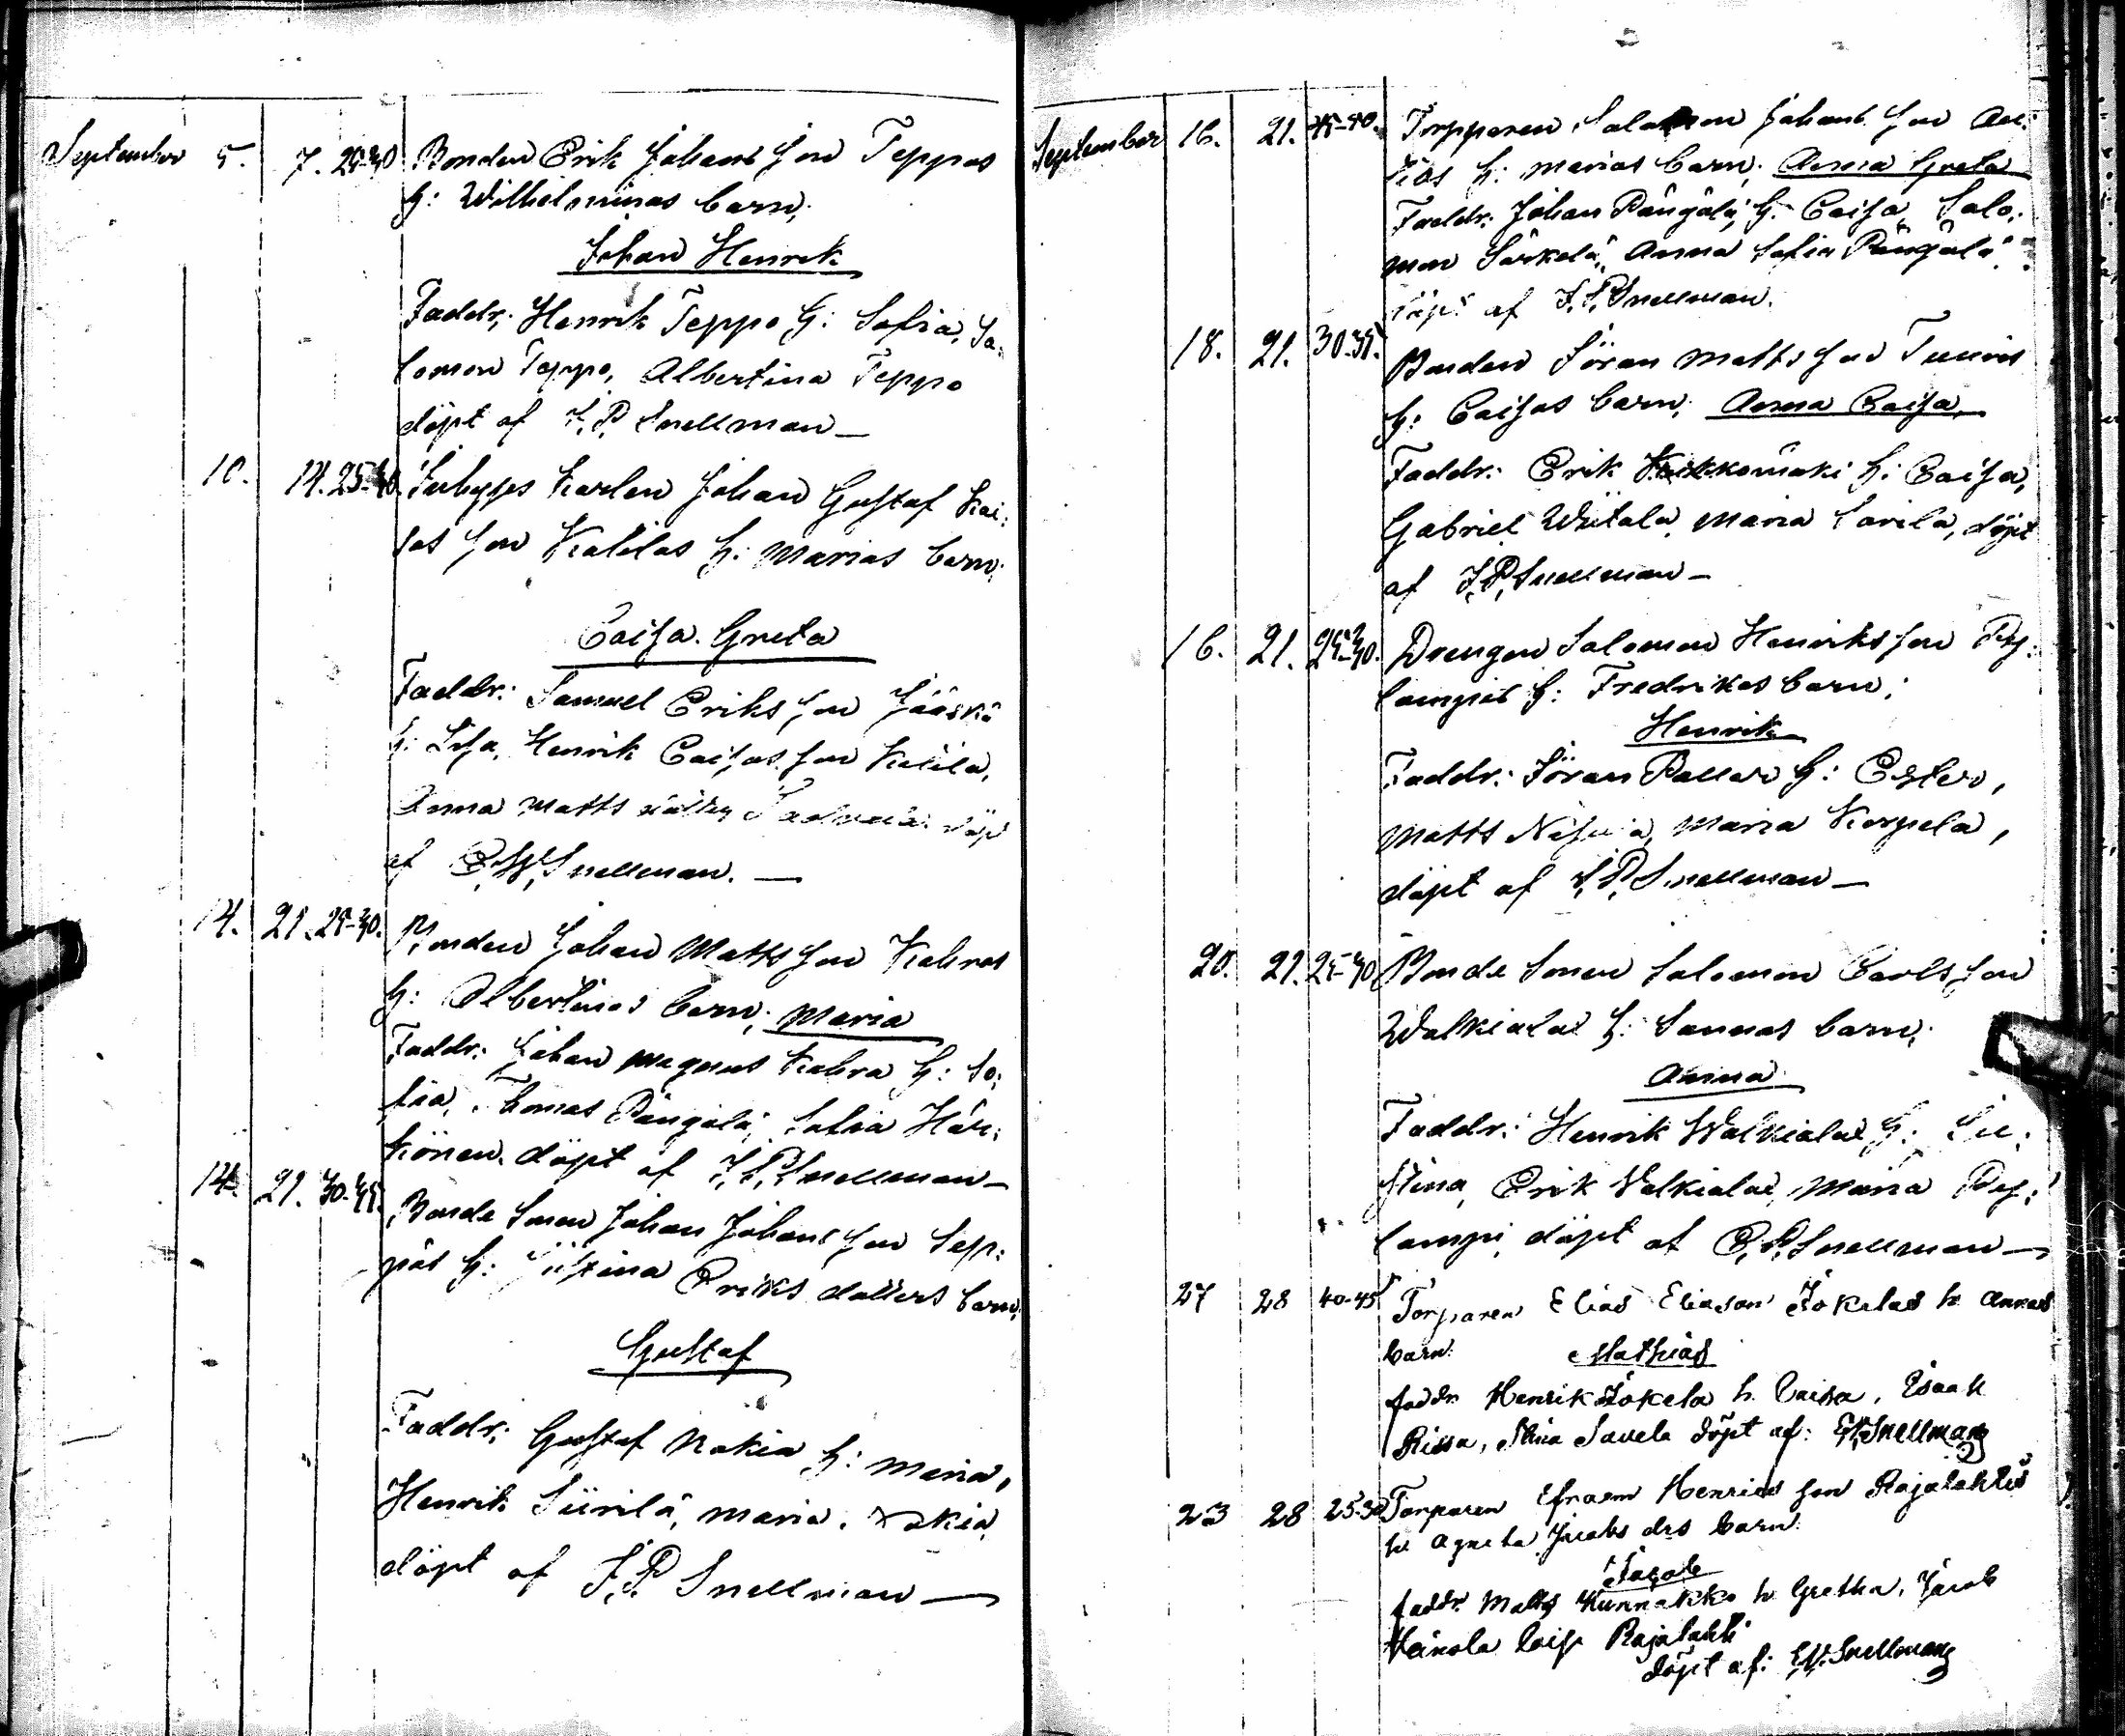 September 5. 7. 20-30 Bonden Erik Johans Son Teppos
h: Wilhelminas barn;
Johan Henrik
Faddr: Henrik Teppo h: Sofia, Sa:
lomon Teppo, Albertina Teppo
döpt af J. P. Snellman—
10. 14. 25-30. Karlen Johan Gustaf Kai:
sas Son Kalilas h: Marias barn;
Caisa Greta
Faddr: Samuel Eriks Son Jääskä
h: Lisa, Henrik Caisas Son Kalila,
Anna Matts
af E. W. Snellman. —
14. 21. 25-30. Bonden Johan Matts Son Kahras
h: Albertinas barn; Maria
Faddr: Johan Magnus Kahra h: So:
fia, Thomas Pängälä, Sofia Här:
könen. döpt af J. P. Snellman—
14. 21. 30-35. Bonde Sonen Johan Johans Son Sep:
päs h: Justina Eriks dotters barn;
Gustaf
Faddr: Gustaf Nokia h: Maria,
Henrik Siirilä, Maria Nokia,
döpt af J. P. Snellman—
September 16. 21. 35-40. Torpparen Salomon Johans Son An:
h: Marias barn; Anna Greta
Faddr: Johan Pängälä, h: Caisa, Salo:
mon Särkelä, Anna Sofia Pängälä
döpt af J. P. Snellman.
18. 21. 30-35. Bonden Jöran Matts Son
h: Caisas barn; Anna Caisa
Faddr: Erik h: Caisa,
Gabriel Wiitala, Maria Savila, döpt
af J. P. Snellman—
16. 21. 25-30. Drengen Salomon Henriks Son Py:
lampis h: Fredrikas barn;
Henrik
Faddr: Jöran Pallar h: Ester,
Matts Maria Korpela,
döpt af J. P. Snellman—
20. 21. 25-30 Bonde Sonen Salomon Carls Son
Walkialas h: Sannas barn;
Anna
Faddr: Henrik Walkiala h: Liv:
stina, Erik Valkiala, Maria Py:
lampi, döpt af E. P. Snellman—
27 28 40-45 Torparen Elias Eliason Jokelas h. Annas
barn: Mathias
faddr Henrik Jokela h. Caisa, Isaak
Rissa, Stina Savela döpt af: E. W. Snellman
23 28 25-30 Torparen Efraem Henriks Son Rajalahtis
h. Agneta Jacobs drs barn.
Jacob
faddr. Matts Kunnakko h. Gretha, Jacob
Heinola Caisa Rajalahti
döpt af: E. W. Snellman